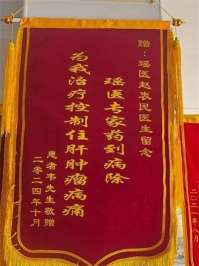 赠：瑶医赵衷民医生留念
瑶医专家药到病除
为我治疗控制住肝肿瘤病痛
患者韦先生敬赠
二零二四年十月